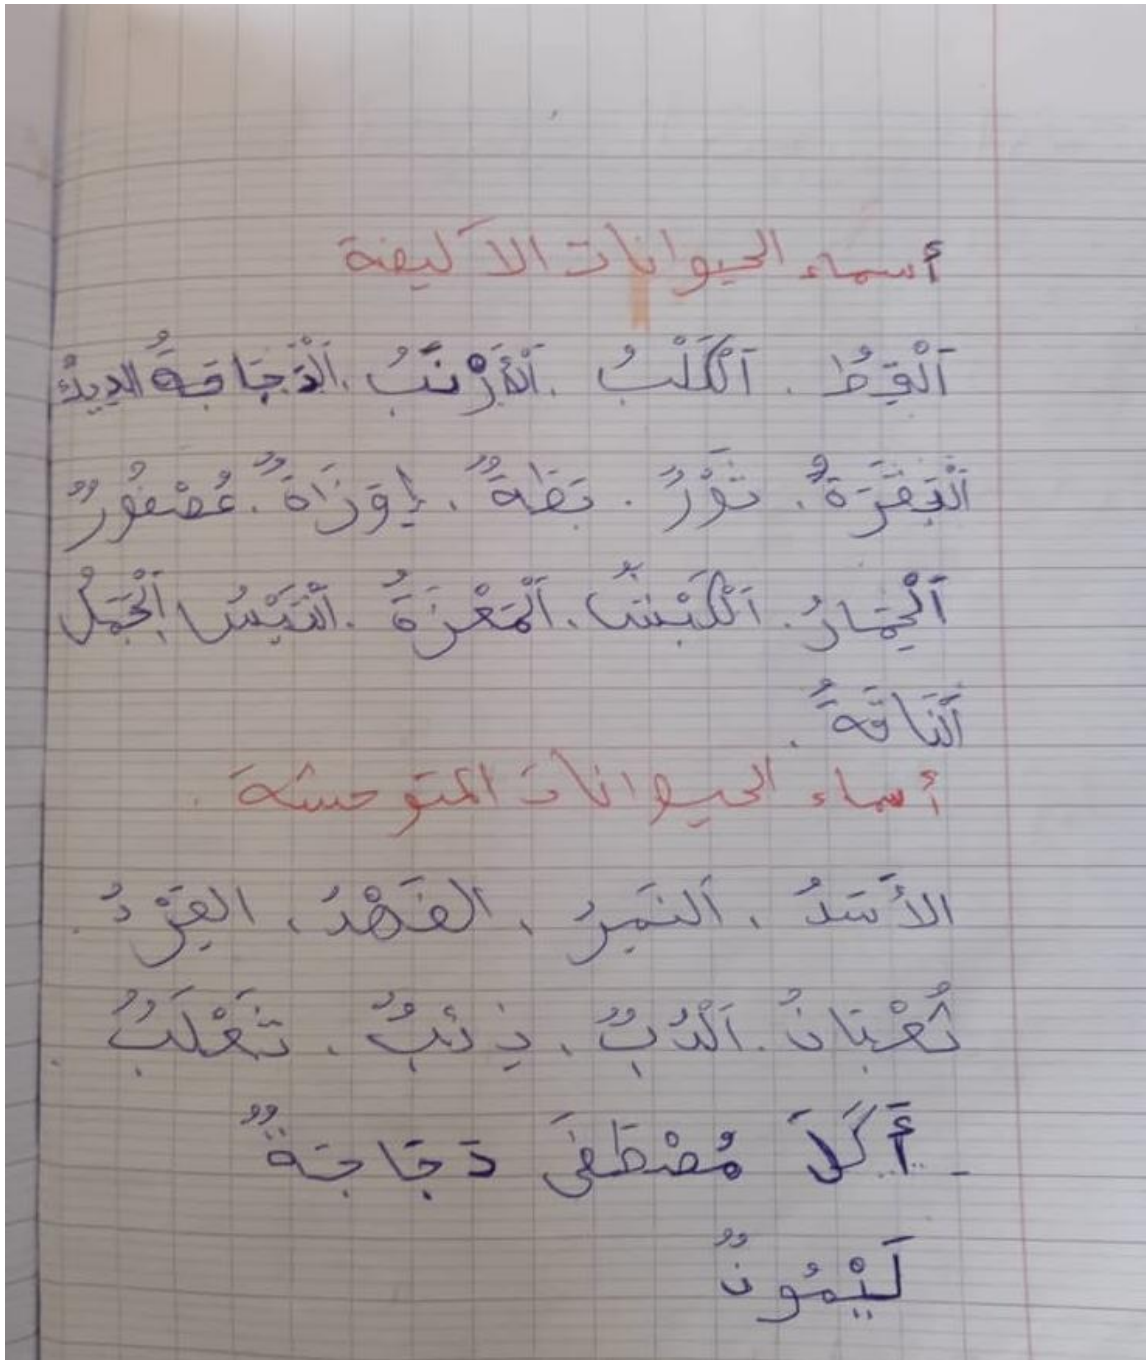 أسماء الحيوانات الآليفة
اَلْقِطُ . اَلْكَلْبُ . اَلْأَرْنَبُ . اَلْدَجَاجَةُ الدِيكُ
اَلْبَقَرَةُ . ثَوْرٌ . بَطَةٌ . إِوَزَاةٌ . عُصْفُورٌ
اَلْحِمَارُ . اَلْكَبْشُ . اَلْمَعْزَةُ . اَلْتَيْسُ اَلْجَمَلُ
اَلنَاقَةُ .
أسماء الحيوانات المتوحشة .
الأَسَدُ . اَلنَمِرُ . الفَهْدُ . القِرْدُ .
ثُعْبَانُ . اَلْدُبٌ . ذِئْبٌ . ثَعْلَبٌ .
- أَكَلَ مُصْطَفَى دَجَاجَةٌ
لَيْمُونٌ